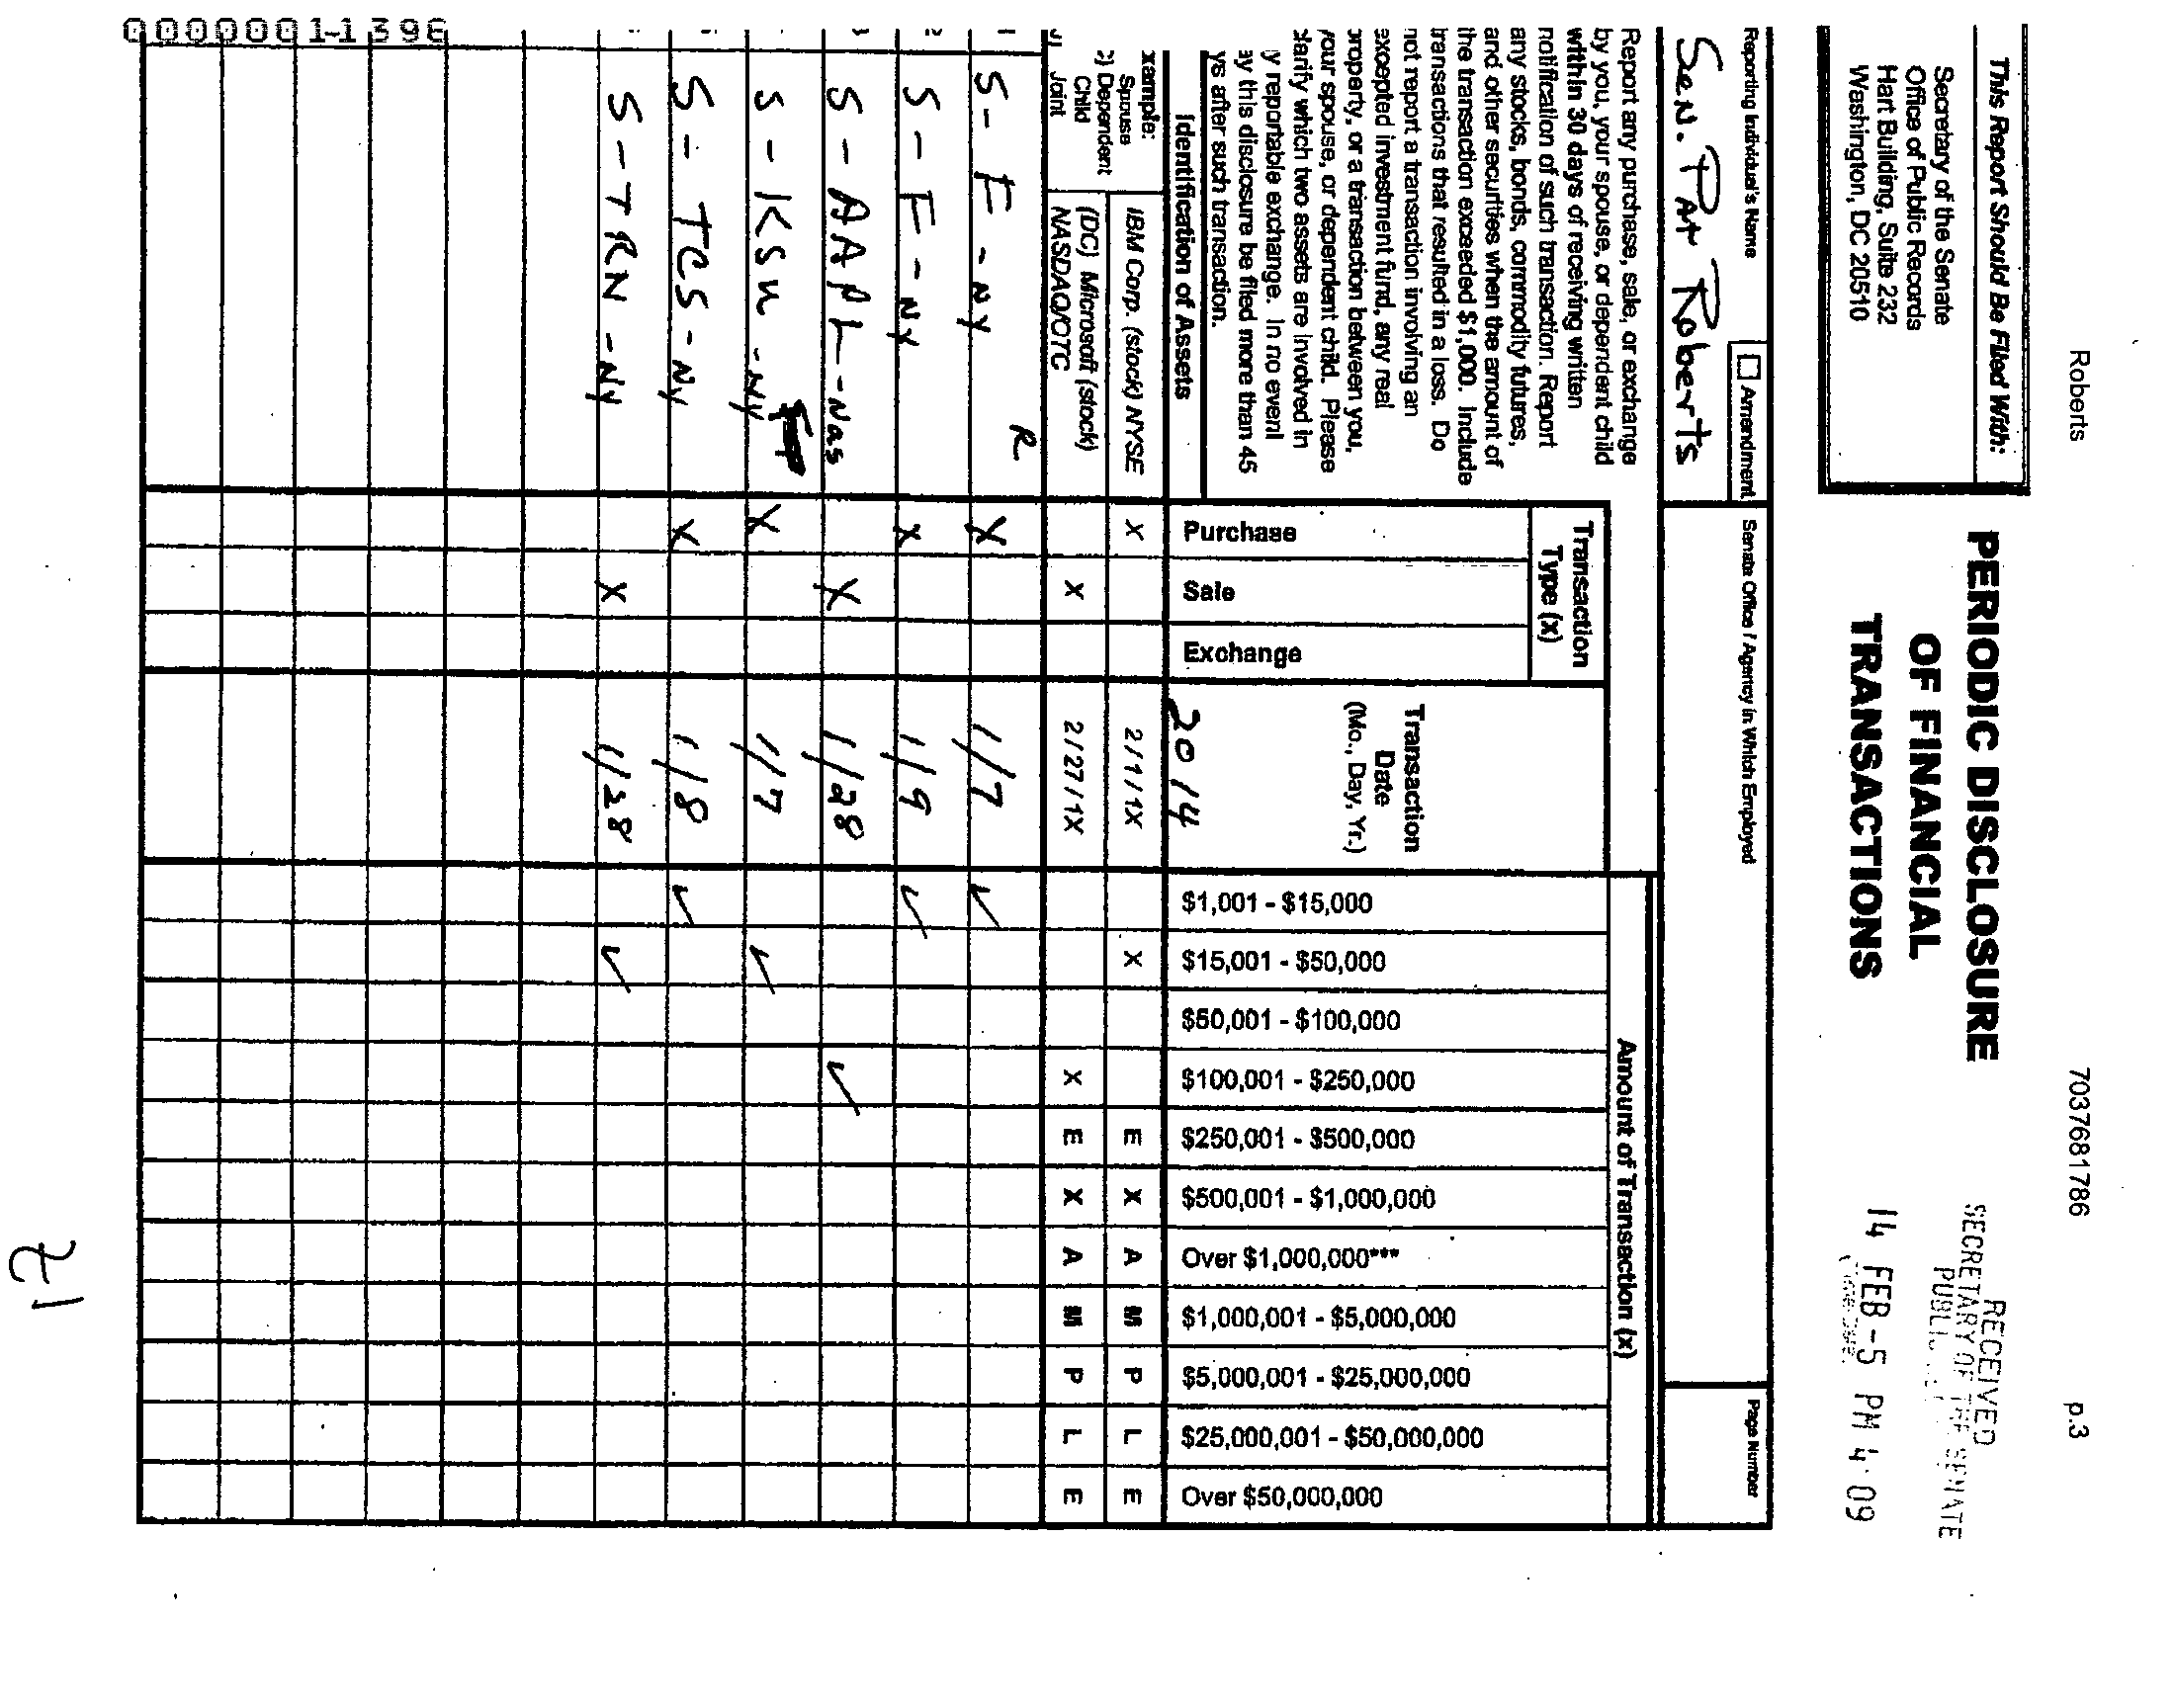 Roberts 7037681786 p.3
This Report Should Be Filed With:
Secretary of the Senate
Office of Public Records
Hart Building, Suite 232
Washington, DC 20510
PERIODIC DISCLOSURE
OF FINANCIAL
TRANSACTIONS
RECEIVED
SECRETARY OF THE SENATE
14 FEB -5 PM 4:09
Reporting Individual's Name
Amendment
Senate Office / Agency in Which Employed
Page Number
Sen. Pat Roberts
Report any purchase, sale, or exchange
by you, your spouse, or dependent child
within 30 days of receiving written
notification of such transaction. Report
any stocks, bonds, commodity futures,
and other securities when the amount of
the transaction exceeded $1,000. Include
transactions that resulted in a loss. Do
not report a transaction involving an
excepted investment fund, any real
property, or a transaction between you,
your spouse, or dependent child. Please
clarify which two assets are involved in
y reportable exchange. In no event
ay this disclosure be filed more than 45
ys after such transaction.
Identification of Assets
Transaction
Type (x)
Purchase
Sale
Exchange
Transaction
Date
(Mo., Day, Yr.)
2014
Amount of Transaction (x)
$1,001 - $15,000
$15,001 - $50,000
$50,001 - $100,000
$100,001 - $250,000
$250,001 - $500,000
$500,001 - $1,000,000
Over $1,000,000***
$1,000,001 - $5,000,000
$5,000,001 - $25,000,000
$25,000,001 - $50,000,000
Over $50,000,000
xample:
Spouse
C) Dependent
Child
J) Joint
IBM Corp. (stock) NYSE X 2/1/1X X E X A M P L E
(DC) Microsoft (stock)
NASDAQ/OTC X 2/27/1X X E X A M P L E
R
S - F - NY X 1/7 ✓
S - F - NY X 1/9 ✓
S - AAPL - Nas X 1/28 ✓
S - KSU - NY X 1/7 ✓
S - TCS - NY X 1/8 ✓
S - TRN - NY X 1/28 ✓